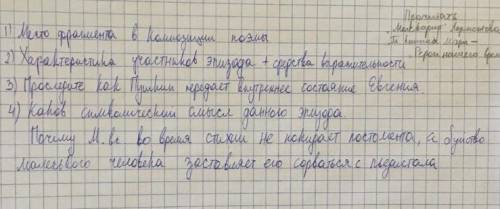 Прочитать
"Маскарад" Лермонтова
Герой нашего врем
1) Место фрагмента в композиции поэмы
2) Характеристика участников эпизода + средства выразительности
3) Проследите как Пушкин передаёт внутреннее состояние Евгения.
4) Каков символический смысл данного эпизода.
Почему М.вс во время стихии не покидает постамента, а буйство
маленького человека заставляет его сорваться с пьедестала